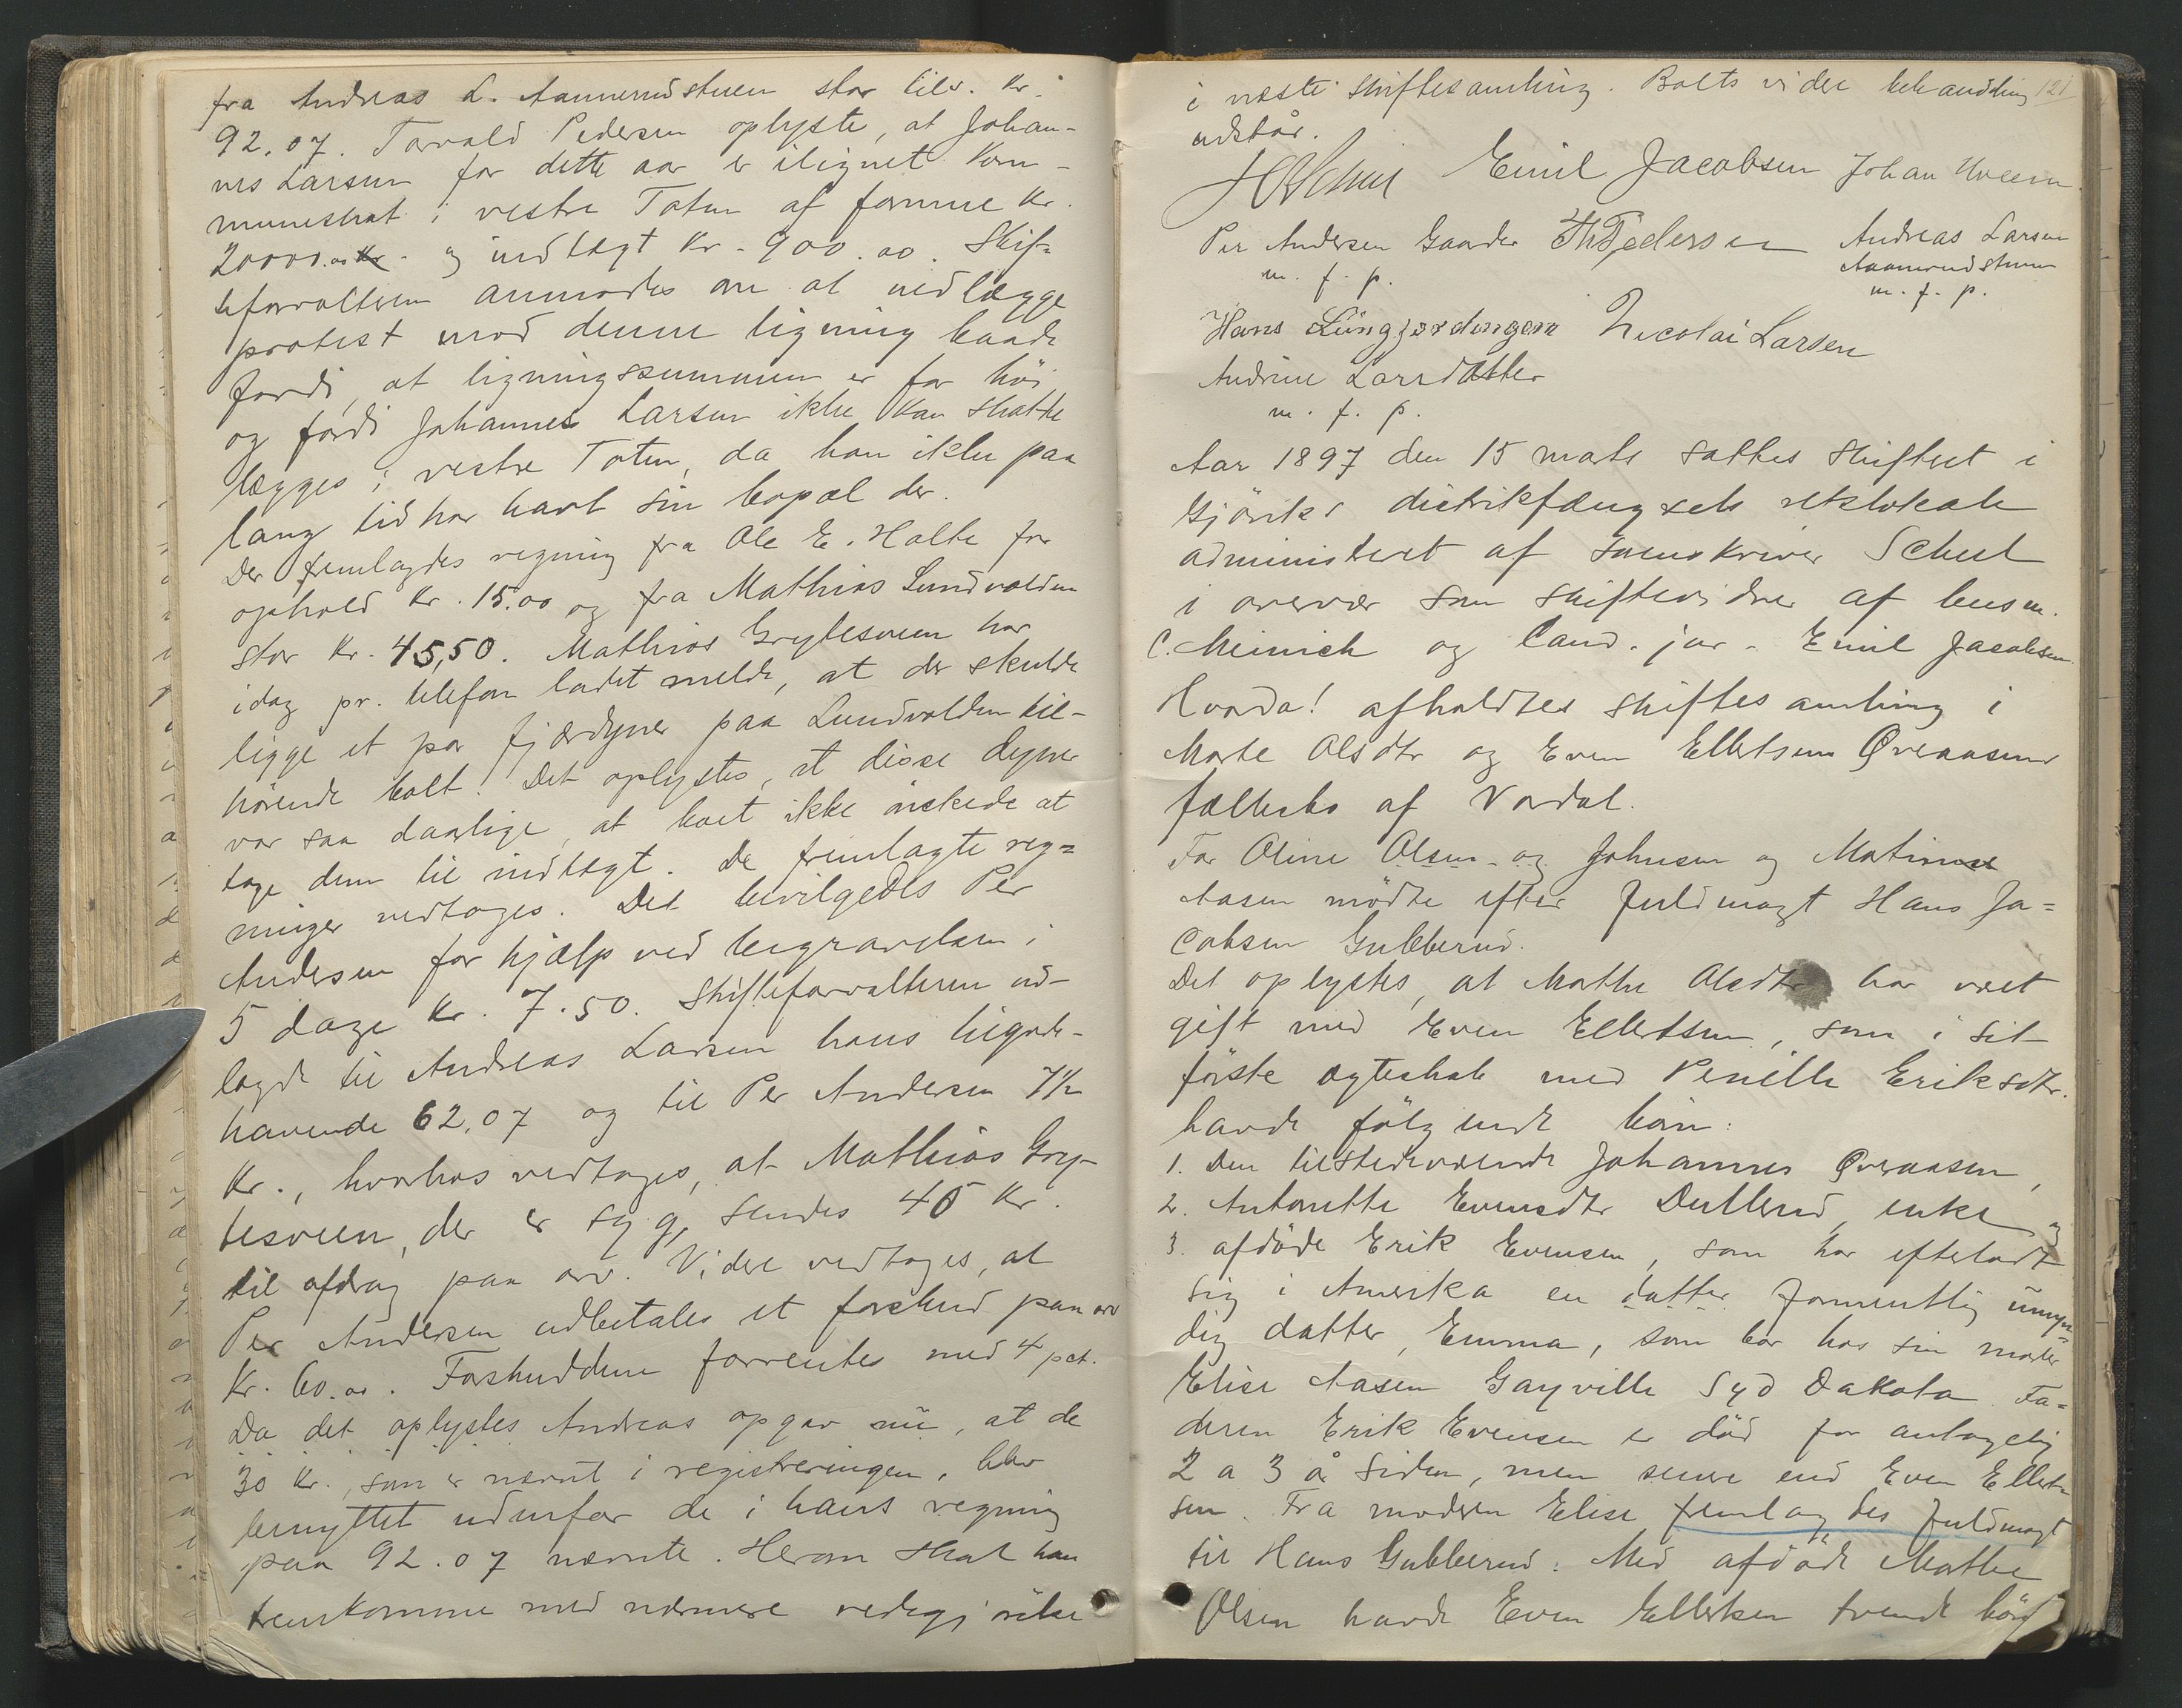 fra Andreas L. Aannerudstuen stor tils. Kr.
92.07. Torvald Pedersen oplyste, at Johan-
nes Larsen for dette aar er ilignet kom-
muneskat i vestre Toten af formue Kr.
20000.00 og indtægt Kr. 900.00. Skif-
teforvalteren anmodes om at nedlægge
protest mod denne ligning baade
fordi, at ligningssummen er for høi,
og fordi Johannes Larsen ikke kan skatte
lægges i vestre Toten, da han ikke paa
lang tid har havt sin bopæl der.
Der fremlagdes regning fra Ole E. Holte for
ophold Kr. 15.00 og fra Mathias Lundvolden
stor Kr. 45,50. Mathias Grytesveen har
idag pr. telefon ladet melde, at der skulde
ligge et par fjærdyner paa Lundvolden til-
hørende boet! Det oplystes, at disse dyner
var saa daarlige, at boet ikke ønskede at
tage dem til indtægt. De fremlagte reg=
ninger vedtoges. Det bevilgedes Per
Andersen for hjælp ved begravelsen i
5 dage Kr. 7.50. Skifteforvalteren ud-
lagde til Andreas Larsen hans tilgode-
havende 62.07 og til Per Andersen 7½
Kr., hvorhos vedtoges, at Mathias Gry-
tesveen, der er syg, sendes 40 Kr.
til afdrag paa arv. Videre vedtoges, at
Per Andersen udbetales et forskud paa arv
Kr. 60.00. Forskuddene forrentes med 4 pct.
Da det oplystes Andreas opgav nu, at de
30 Kr., som er nævnt i registreringen, blev
benyttet udenfor de i hans regning
paa 92.07 nævnte. Herom skal han
fremkomme med nærmere redegjørelse
i næste skiftesamling. Boets videre behandling 121
udstår.
Emil Jacobsen Johan
Per Andersen Gaarder Th Pedersen Andreas Larsen
m. f. p. Aannerudstuen
m. f. p.
Hans Nicolai Larsen
Andrine Larsdatter
m. f. p.
Aar 1897 den 15 marts sattes skifteret i
Gjøviks distriktfængsels retslokale
administreret af sorenskriver Scheel
i overvær som skiftevidner af lensm.
C. Meinich og Cand. jur. Emil Jacobsen.
Hvorda! afholdtes skiftesamling i
Marte Olsdtr og Even Ellertsen Øveraasens
fællesbo af Vardal.
For Oline Olsen og Johnsen og Matinus
Aasen mødte efter fuldmagt Hans Ja=
cobsen Gubberud.
Det oplystes, at Marthe Olsdtr har væet
gift med Even Ellertsen, som i sit
første ægteskab med Pernille Eriksdtr.
havde følgende børn:
1. Den tilstedeværende Johannes Øveraasen,
2. Antonette Evensdtr Dullerud, enke og
3. afdøde Erik Evensen, som har efterladt
sig i Amerika en datter formentlig umyn=
dig datter, Emma, som bor hos sin moder
Elise Aasen Gayville Syd Dakota. Fa=
deren Erik Evensen er død for antagelig
2 a 3 å siden, men senere end Even Ellert-
sen. Fra moderen Elise fremlagdes fuldmagt
til Hans Gubberud. Med afdøde Marthe
Olsen havde Even Ellertsen trende børn